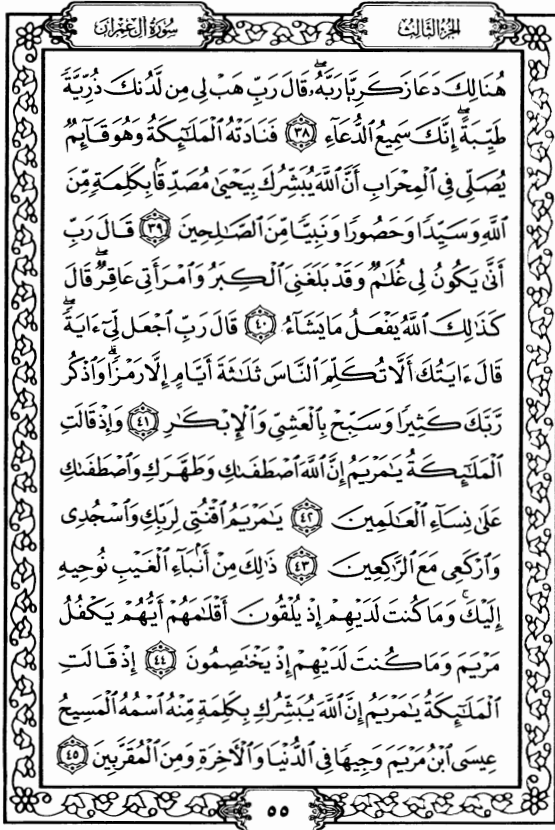 سُورَةُ آلِ عِمْرَانَ
الجُزءُ الثَّالِثُ
هُنَالِكَ دَعَا زَكَرِيَّا رَبَّهُۥۖ قَالَ رَبِّ هَبۡ لِي مِن لَّدُنكَ ذُرِّيَّةٗ
طَيِّبَةًۖ إِنَّكَ سَمِيعُ ٱلدُّعَآءِ ٣٨ فَنَادَتۡهُ ٱلۡمَلَٰٓئِكَةُ وَهُوَ قَآئِمٞ
يُصَلِّي فِي ٱلۡمِحۡرَابِ أَنَّ ٱللَّهَ يُبَشِّرُكَ بِيَحۡيَىٰ مُصَدِّقَۢا بِكَلِمَةٖ مِّنَ
ٱللَّهِ وَسَيِّدٗا وَحَصُورٗا وَنَبِيّٗا مِّنَ ٱلصَّٰلِحِينَ ٣٩ قَالَ رَبِّ
أَنَّىٰ يَكُونُ لِي غُلَٰمٞ وَقَدۡ بَلَغَنِيَ ٱلۡكِبَرُ وَٱمۡرَأَتِي عَاقِرٞۖ قَالَ
كَذَٰلِكَ ٱللَّهُ يَفۡعَلُ مَا يَشَآءُ ٤٠ قَالَ رَبِّ ٱجۡعَل لِّيٓ ءَايَةٗۖ
قَالَ ءَايَتُكَ أَلَّا تُكَلِّمَ ٱلنَّاسَ ثَلَٰثَةَ أَيَّامٍ إِلَّا رَمۡزٗاۗ وَٱذۡكُر
رَّبَّكَ كَثِيرٗا وَسَبِّحۡ بِٱلۡعَشِيِّ وَٱلۡإِبۡكَٰرِ ٤١ وَإِذۡ قَالَتِ
ٱلۡمَلَٰٓئِكَةُ يَٰمَرۡيَمُ إِنَّ ٱللَّهَ ٱصۡطَفَىٰكِ وَطَهَّرَكِ وَٱصۡطَفَىٰكِ
عَلَىٰ نِسَآءِ ٱلۡعَٰلَمِينَ ٤٢ يَٰمَرۡيَمُ ٱقۡنُتِي لِرَبِّكِ وَٱسۡجُدِي
وَٱرۡكَعِي مَعَ ٱلرَّٰكِعِينَ ٤٣ ذَٰلِكَ مِنۡ أَنۢبَآءِ ٱلۡغَيۡبِ نُوحِيهِ
إِلَيۡكَۚ وَمَا كُنتَ لَدَيۡهِمۡ إِذۡ يُلۡقُونَ أَقۡلَٰمَهُمۡ أَيُّهُمۡ يَكۡفُلُ
مَرۡيَمَ وَمَا كُنتَ لَدَيۡهِمۡ إِذۡ يَخۡتَصِمُونَ ٤٤ إِذۡ قَالَتِ
ٱلۡمَلَٰٓئِكَةُ يَٰمَرۡيَمُ إِنَّ ٱللَّهَ يُبَشِّرُكِ بِكَلِمَةٖ مِّنۡهُ ٱسۡمُهُ ٱلۡمَسِيحُ
عِيسَى ٱبۡنُ مَرۡيَمَ وَجِيهٗا فِي ٱلدُّنۡيَا وَٱلۡأٓخِرَةِ وَمِنَ ٱلۡمُقَرَّبِينَ ٤٥
٥٥